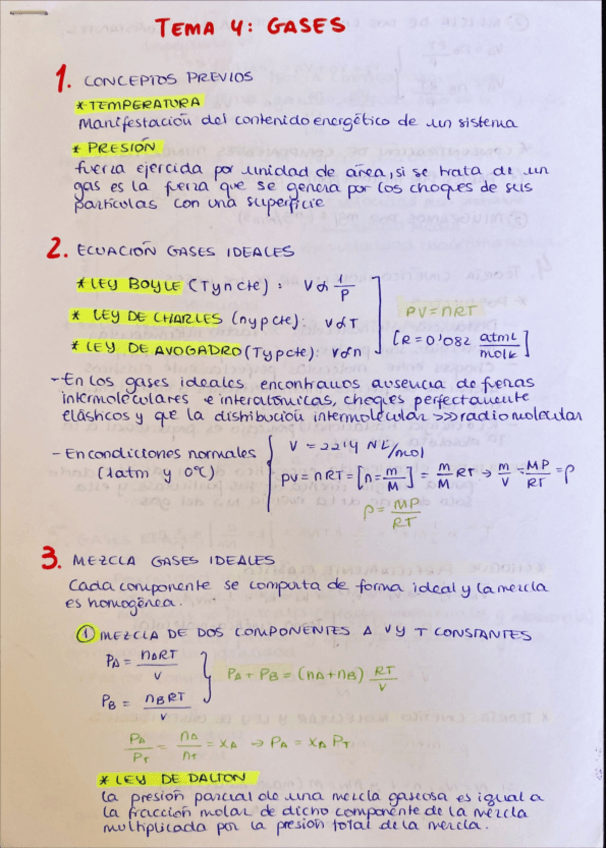 TEMA 4: GASES
1. CONCEPTOS PREVIOS
* TEMPERATURA
Manifestación del contenido energético de un sistema
* PRESIÓN
fuerza ejercida por unidad de área, si se trata de un
gas es la fuerza que se genera por los choques de sus
partículas con una superficie
2. ECUACIÓN GASES IDEALES
* LEY BOYLE (T y n cte): V ∝ 1/P
* LEY DE CHARLES (n y p cte): V ∝ T
* LEY DE AVOGADRO (T y p cte): V ∝ n
PV = nRT
[R = 0'082 atm L / mol K]
- En los gases ideales encontramos ausencia de fuerzas
intermoleculares e interatómicas, choques perfectamente
elásticos y que la distribución intermolecular >>> radio molecular
- En condiciones normales
(1 atm y 0ºC)
V = 22'4 NL/mol
pV = nRT = [n = m/M] = m/M RT → m/V = MP/RT = ρ
ρ = MP/RT
3. MEZCLA GASES IDEALES
Cada componente se comporta de forma ideal y la mezcla
es homogénea.
① MEZCLA DE DOS COMPONENTES A V y T CONSTANTES
PA = nART/V
PB = nBRT/V
PA + PB = (nA + nB) RT/V
PA/PT = nA/nT = XA → PA = XA PT
* LEY DE DALTON
la presión parcial de una mezcla gaseosa es igual a
la fracción molar de dicho componente de la mezcla
multiplicada por la presión total de la mezcla.